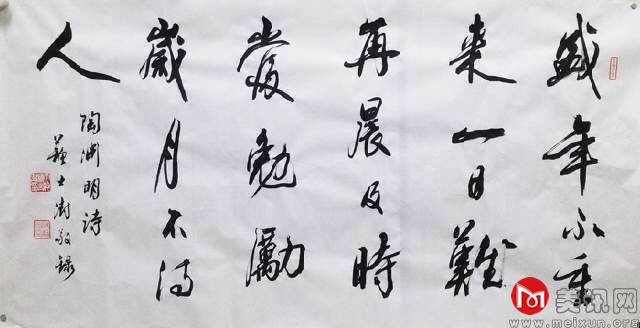 盛年不重
来一日難
再晨及時
當勉勵
歲月不待
人
陶渊明诗
蘇士澍敬録
美讯网
www.meixun.org